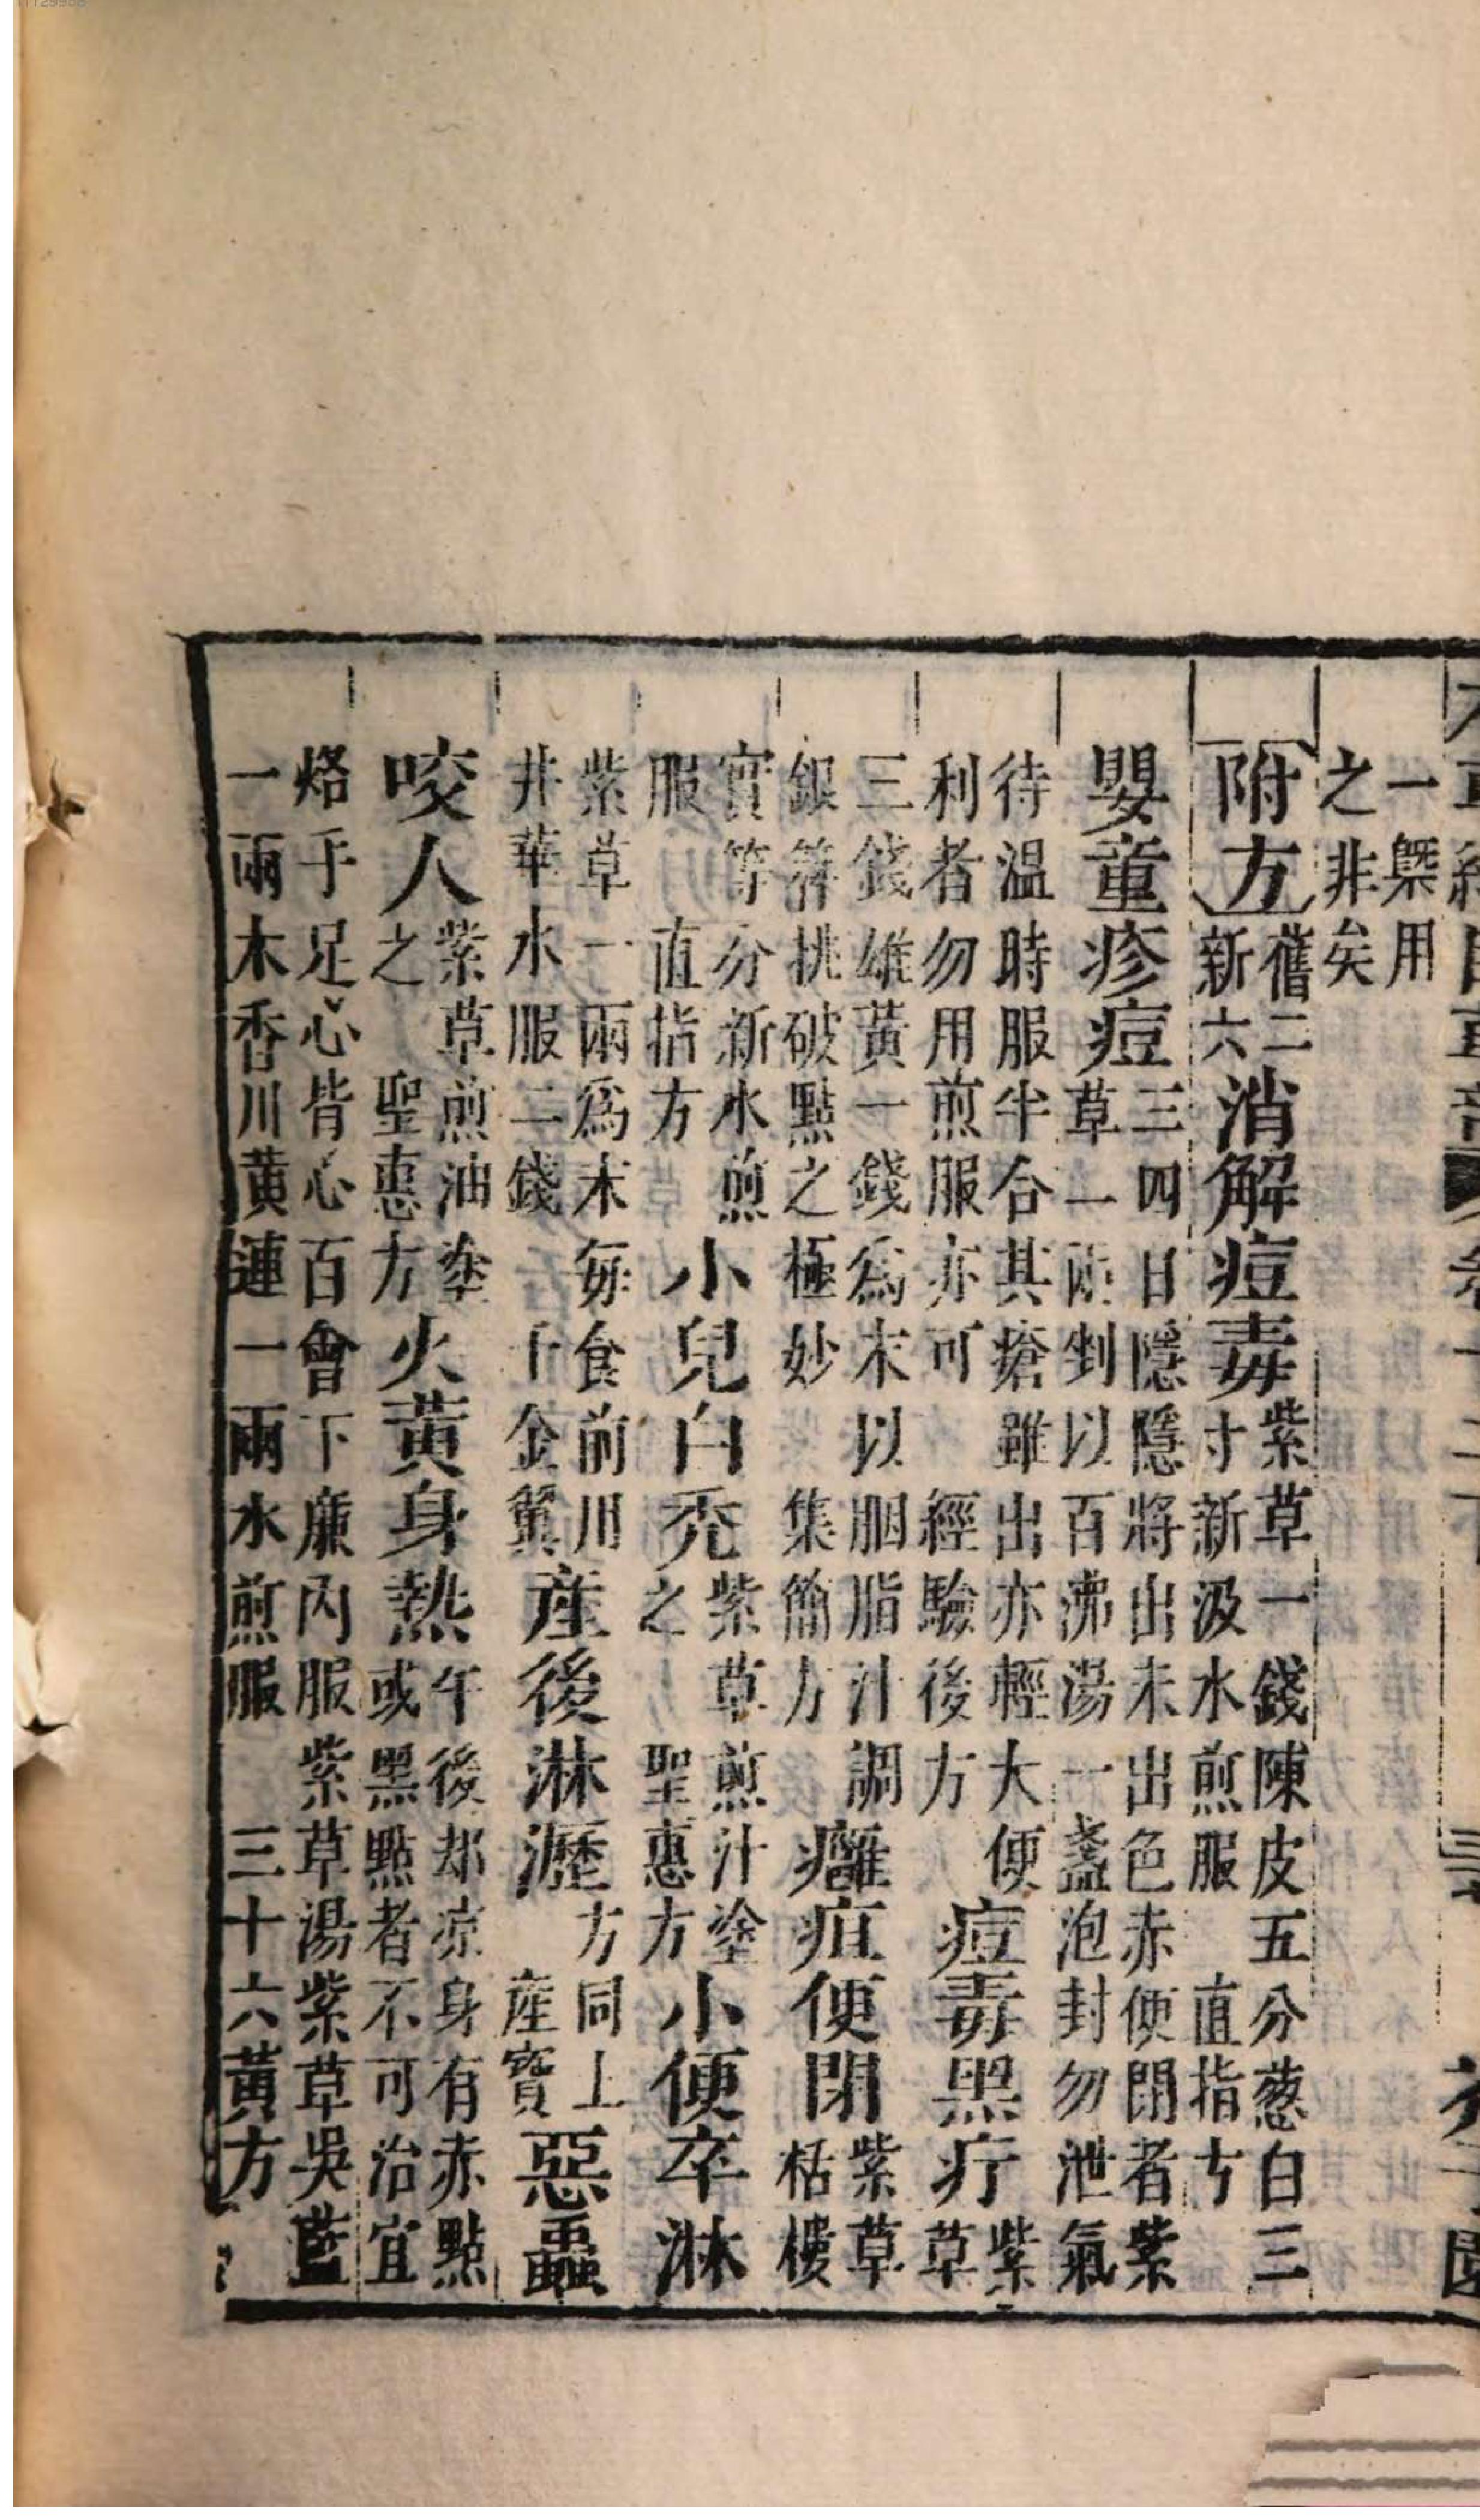 一槩用
之非矣
附方 舊二 新六 消解痘毒 紫草一錢陳皮五分葱白三
寸新汲水煎服 直指方
嬰童疹痘 三四日隱隱將出未出色赤便閉者紫
草一兩剉以百沸湯一盞泡封勿泄氣
待溫時服半合其瘡雖出亦輕大便
利者勿用煎服亦可 經驗後方 痘毒黑疔 紫
草
三錢雄黃一錢爲末以胭脂汁調
銀簪挑破點之極妙 集簡方 癰疽便閉 紫草
栝樓
實等分新水煎
服 直指方 小兒白禿 紫草煎汁塗
之 聖惠方 小便卒淋
紫草一兩爲末每食前用
井華水服二錢 千金翼 產後淋瀝 方同上
產寶 惡蟲
咬人 紫草煎油塗
之 聖惠方 火黃身熱 午後却凉身有赤點
或黑點者不可治宜
烙手足心背心百會下廉內服紫草湯紫草吳藍
一兩木香川黃連一兩水煎服 三十六黃方